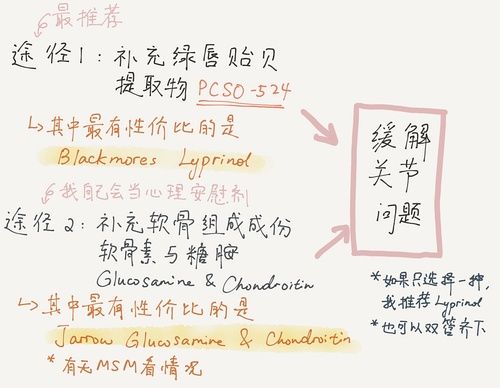 最推荐
途径1：补充绿唇贻贝
提取物 PCSO-524
其中最有性价比的是
Blackmores Lyprinol
我配会当心理安慰剂
途径2：补充软骨组成成份
软骨素与糖胺
Glucosamine & Chondroitin
其中最有性价比的是
Jarrow Glucosamine & Chondroitin
*有无MSM看情况
缓解
关节
问题
*如果只选择一种，
我推荐Lyprinol
*也可以双管齐下